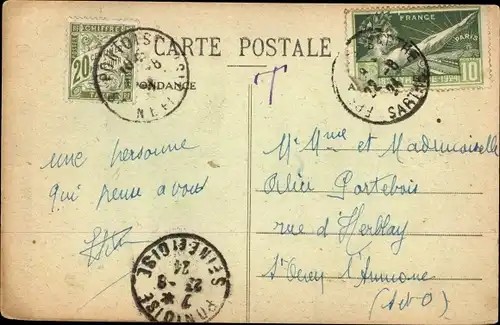 CHIFFRE
20
TAXE
PONTOISE
CARTE POSTALE
FRANCE
PARIS
1924
10
SARTHE
T
PONDANCE
une personne
qui pense a vous
Mr Mme et Mademoiselle
Alice Portebois
rue d'Herblay
St Ouen l'Aumone
(S et O)
PONTOISE
SEINE ET OISE
7
23 -8
24